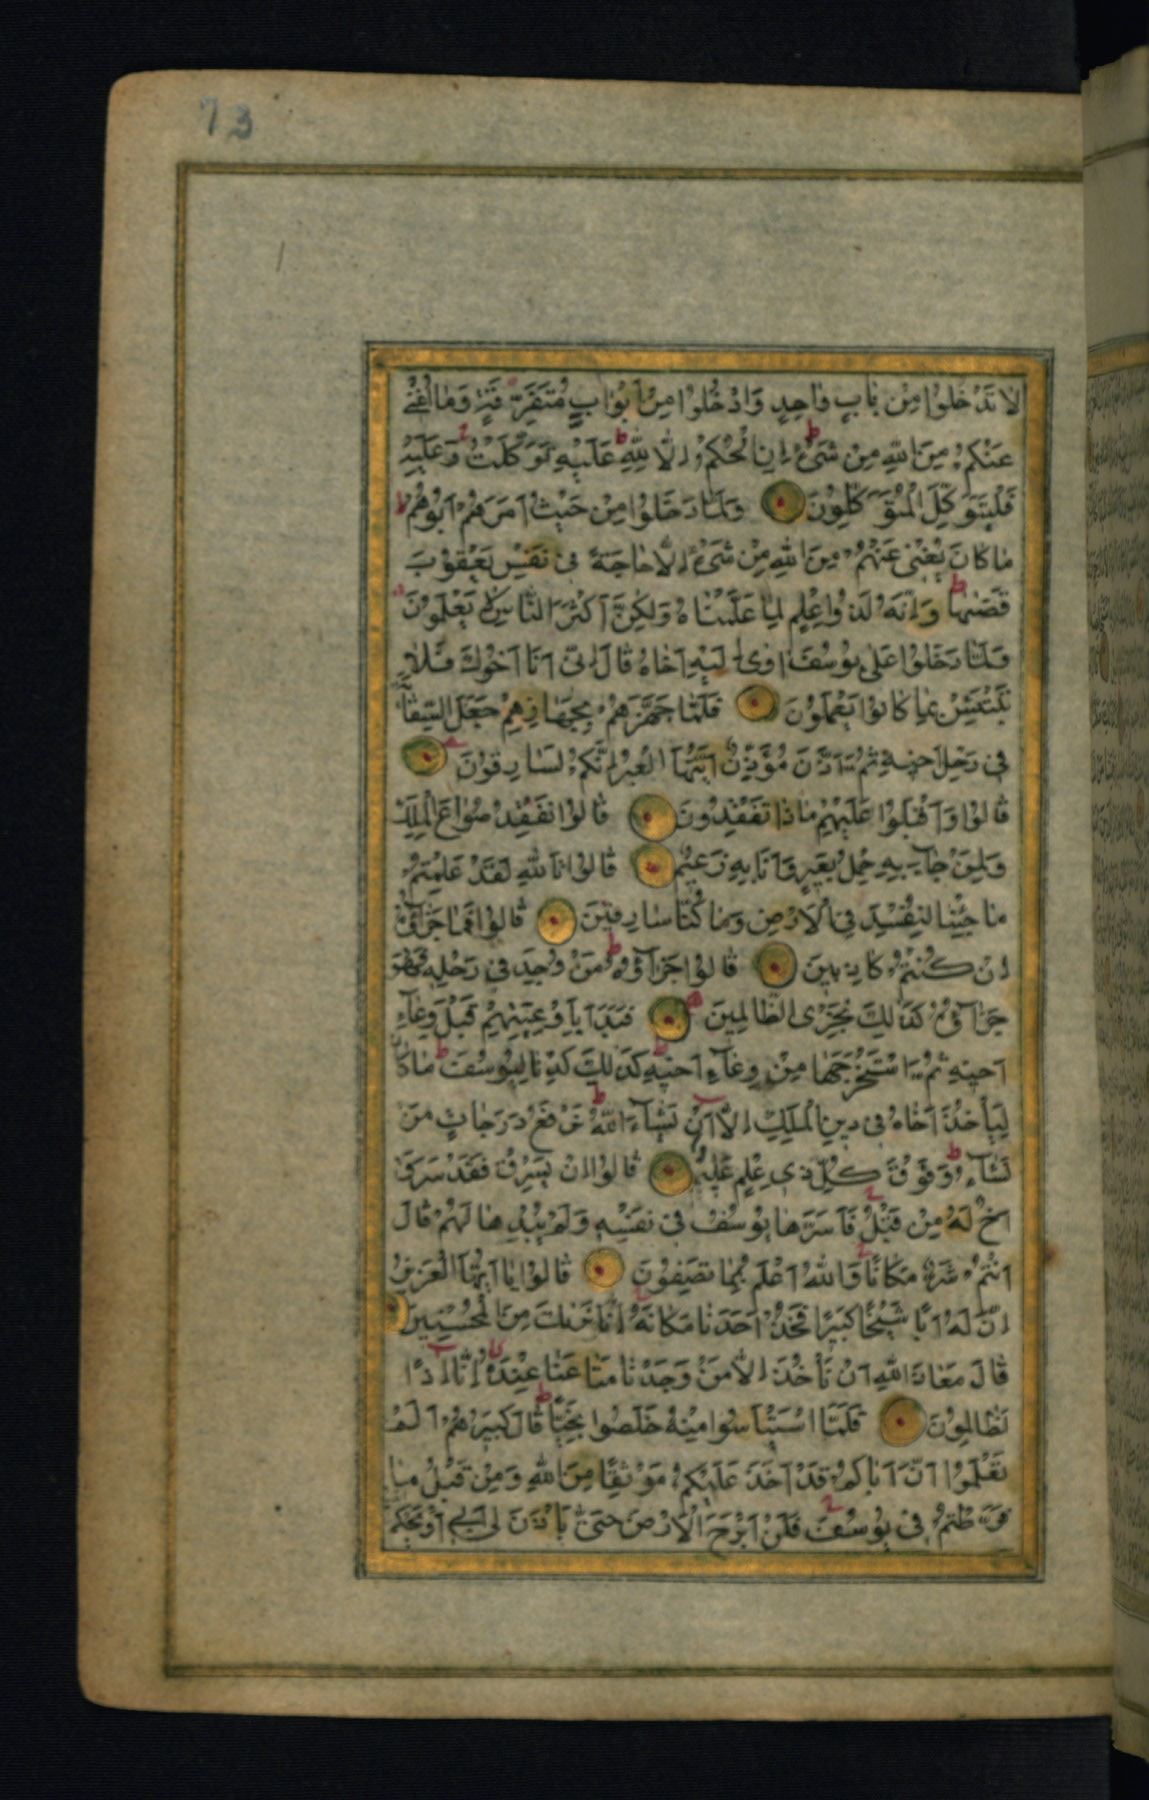 73
لا تَدْخُلُوا مِنْ بَابٍ وَاحِدٍ وَادْخُلُوا مِنْ اَبْوَابٍ مُتَفَرِّقَةٍ وَمَا اُغْنِي
عَنْكُمْ مِنَ اللّٰهِ مِنْ شَيْءٍ اِنِ الْحُكْمُ اِلَّا لِلّٰهِ عَلَيْهِ تَوَكَّلْتُ وَعَلَيْهِ
فَلْيَتَوَكَّلِ الْمُتَوَكِّلُونَ وَلَمَّا دَخَلُوا مِنْ حَيْثُ اَمَرَهُمْ اَبُوهُمْ
مَا كَانَ يُغْنِي عَنْهُمْ مِنَ اللّٰهِ مِنْ شَيْءٍ اِلَّا حَاجَةً فِي نَفْسِ يَعْقُوبَ
قَضٰهَا وَاِنَّهُ لَذُو عِلْمٍ لِمَا عَلَّمْنَاهُ وَلٰكِنَّ اَكْثَرَ النَّاسِ لَا يَعْلَمُونَ
وَلَمَّا دَخَلُوا عَلٰى يُوسُفَ اٰوٰى اِلَيْهِ اَخَاهُ قَالَ اِنِّي اَنَا اَخُوكَ فَلَا
تَبْتَئِسْ بِمَا كَانُوا يَعْمَلُونَ فَلَمَّا جَهَّزَهُمْ بِجَهَازِهِمْ جَعَلَ السِّقَايَةَ
فِي رَحْلِ اَخِيهِ ثُمَّ اَذَّنَ مُؤَذِّنٌ اَيَّتُهَا الْعِيرُ اِنَّكُمْ لَسَارِقُونَ
قَالُوا وَاَقْبَلُوا عَلَيْهِمْ مَاذَا تَفْقِدُونَ قَالُوا نَفْقِدُ صُوَاعَ الْمَلِكِ
وَلِمَنْ جَاءَ بِهِ حِمْلُ بَعِيرٍ وَاَنَا بِهِ زَعِيمٌ قَالُوا تَاللّٰهِ لَقَدْ عَلِمْتُمْ
مَا جِئْنَا لِنُفْسِدَ فِي الْاَرْضِ وَمَا كُنَّا سَارِقِينَ قَالُوا فَمَا جَزَآؤُهُ
اِنْ كُنْتُمْ كَاذِبِينَ قَالُوا جَزَآؤُهُ مَنْ وُجِدَ فِي رَحْلِهِ فَهُوَ
جَزَآؤُهُ كَذٰلِكَ نَجْزِي الظَّالِمِينَ فَبَدَاَ بِاَوْعِيَتِهِمْ قَبْلَ وِعَآءِ
اَخِيهِ ثُمَّ اسْتَخْرَجَهَا مِنْ وِعَآءِ اَخِيهِ كَذٰلِكَ كِدْنَا لِيُوسُفَ مَا كَانَ
لِيَأْخُذَ اَخَاهُ فِي دِينِ الْمَلِكِ اِلَّا اَنْ يَشَآءَ اللّٰهُ نَرْفَعُ دَرَجَاتٍ مَنْ
نَشَآءُ وَفَوْقَ كُلِّ ذِي عِلْمٍ عَلِيمٌ قَالُوا اِنْ يَسْرِقْ فَقَدْ سَرَقَ
اَخٌ لَهُ مِنْ قَبْلُ فَاَسَرَّهَا يُوسُفُ فِي نَفْسِهِ وَلَمْ يُبْدِهَا لَهُمْ قَالَ
اَنْتُمْ شَرٌّ مَكَانًا وَاللّٰهُ اَعْلَمُ بِمَا تَصِفُونَ قَالُوا يَا اَيُّهَا الْعَزِيزُ
اِنَّ لَهُ اَبًا شَيْخًا كَبِيرًا فَخُذْ اَحَدَنَا مَكَانَهُ اِنَّا نَرٰيكَ مِنَ الْمُحْسِنِينَ
قَالَ مَعَاذَ اللّٰهِ اَنْ نَأْخُذَ اِلَّا مَنْ وَجَدْنَا مَتَاعَنَا عِنْدَهُ اِنَّا اِذًا
لَظَالِمُونَ فَلَمَّا اسْتَيْاَسُوا مِنْهُ خَلَصُوا نَجِيًّا قَالَ كَبِيرُهُمْ اَلَمْ
تَعْلَمُوا اَنَّ اَبَاكُمْ قَدْ اَخَذَ عَلَيْكُمْ مَوْثِقًا مِنَ اللّٰهِ وَمِنْ قَبْلُ مَا
فَرَّطْتُمْ فِي يُوسُفَ فَلَنْ اَبْرَحَ الْاَرْضَ حَتّٰى يَأْذَنَ لِي اَبِي اَوْ يَحْكُمَ